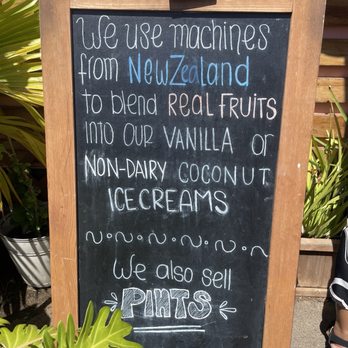 We use machines
from NewZealand
to blend REAL FRUITS
INTO OUR VANILLA or
NON-DAIRY COCONUT
ICECREAMS
We also sell
PINTS